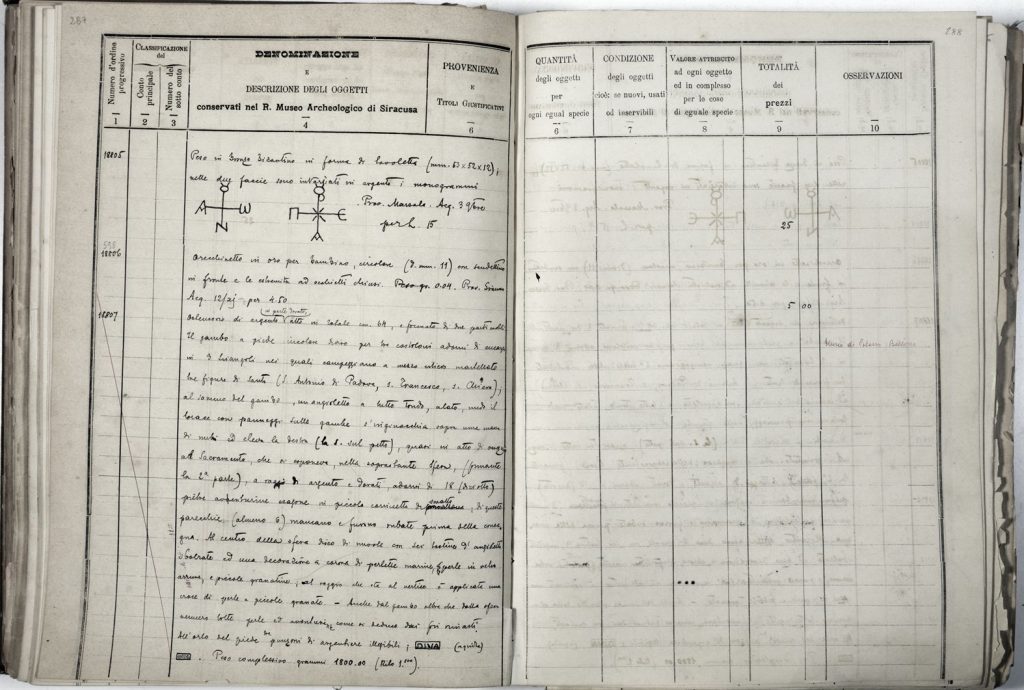 287
Numero d'ordine progressivo
CLASSIFICAZIONE del
Conto principale
Numero del sotto conto
DENOMINAZIONE
E
DESCRIZIONE DEGLI OGGETTI
conservati nel R. Museo Archeologico di Siracusa
PROVENIENZA
E
TITOLI GIUSTIFICATIVI
1 2 3 4 6
18805
Peso in bronzo bizantino in forma di tavoletta (mm. 53 x 52 x 12);
nelle due faccie sono intarsiati in argento i monogrammi
Prov. Marsala. Acq. 3 9bre
per L. 15
A W
N
Π Є
A
18806
Orecchinetto in oro per bambino, circolare (D. mm. 11) con
in fronte e le estremità ad occhietti chiusi. Peso gr. 0.04. Prov. Siracusa
Acq. 12/ per 4.50
18807
in parte dorato
Ostensorio di argento alto in totale cm. 64, e formato di due parti
Il gambo a piede circolare diviso per tre costoloni adorni di
in 3 triangoli nei quali campeggiano a mezzo rilievo
tre figure di santi (S. Antonio di Padova, S. Francesco, S.
al sommo del gambo, un angioletto a tutto tondo, alato, nudo il
torace con panneggi sulle gambe s'inginocchia sopra una massa
di nubi ed eleva la destra (la s. sul petto), quasi in atto di
al Sacramento, che si esponeva, nella soprastante sfera, (formante
la 2ª parte), a raggi di argento e dorati, adorni di 18 (diciotto)
pietre in piccola cornicetta di smalto, di queste
parecchie, (almeno 6) mancano e furono rubate prima della conse-
gna. Al centro della sfera disco di nuvole con sei testine d'angioletti
ed una decorazione a corona di perlette marine,
e piccole granatine; al raggio che sta al vertice è applicata una
croce di perle e piccole granate. - Anche dal gambo oltre che dalla sfera
vennero tolte perle ed come si deduce dai fori rimasti.
All'orlo del piede tre punzoni di argentiere illegibili; (aquila)
. Peso complessivo grammi 1800.00 (Kilo 1.800).
288
QUANTITÀ
degli oggetti
per
ogni egual specie
CONDIZIONE
degli oggetti
cioè: se nuovi, usati
od inservibili
VALORE ATTRIBUITO
ad ogni oggetto
ed in complesso
per le cose
di eguale specie
TOTALITÀ
dei
prezzi
OSSERVAZIONI
6 7 8 9 10
25
5 00
Museo di Palazzo Bellomo